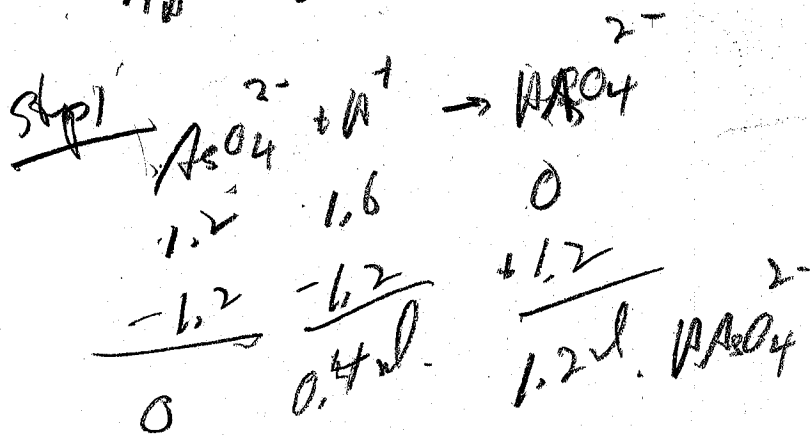 Step 1 AsO₄²⁻ + H⁺ → HAsO₄²⁻
1.2 1.6 0
-1.2 -1.2 +1.2
0 0.4 mol. 1.2 mol. HAsO₄²⁻